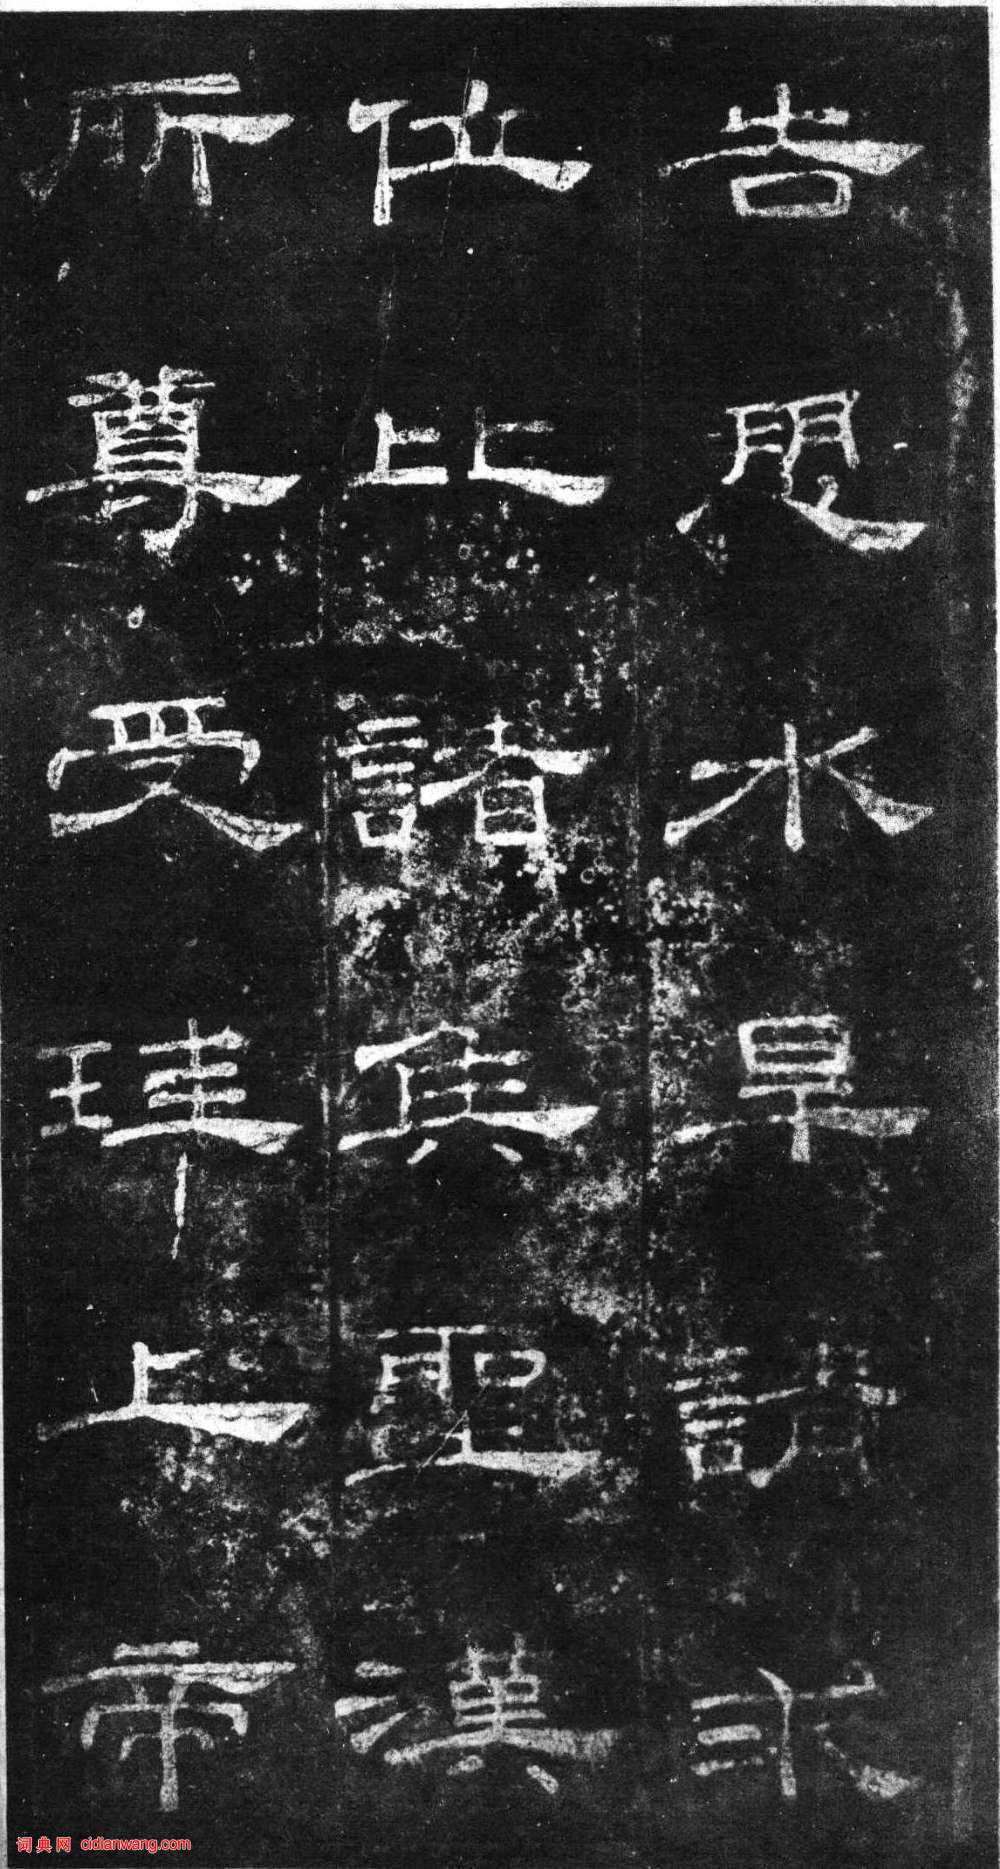 告愬水旱請求
位比諸侯聖漢
所尊受珪上帝
词典网 cidianwang.com